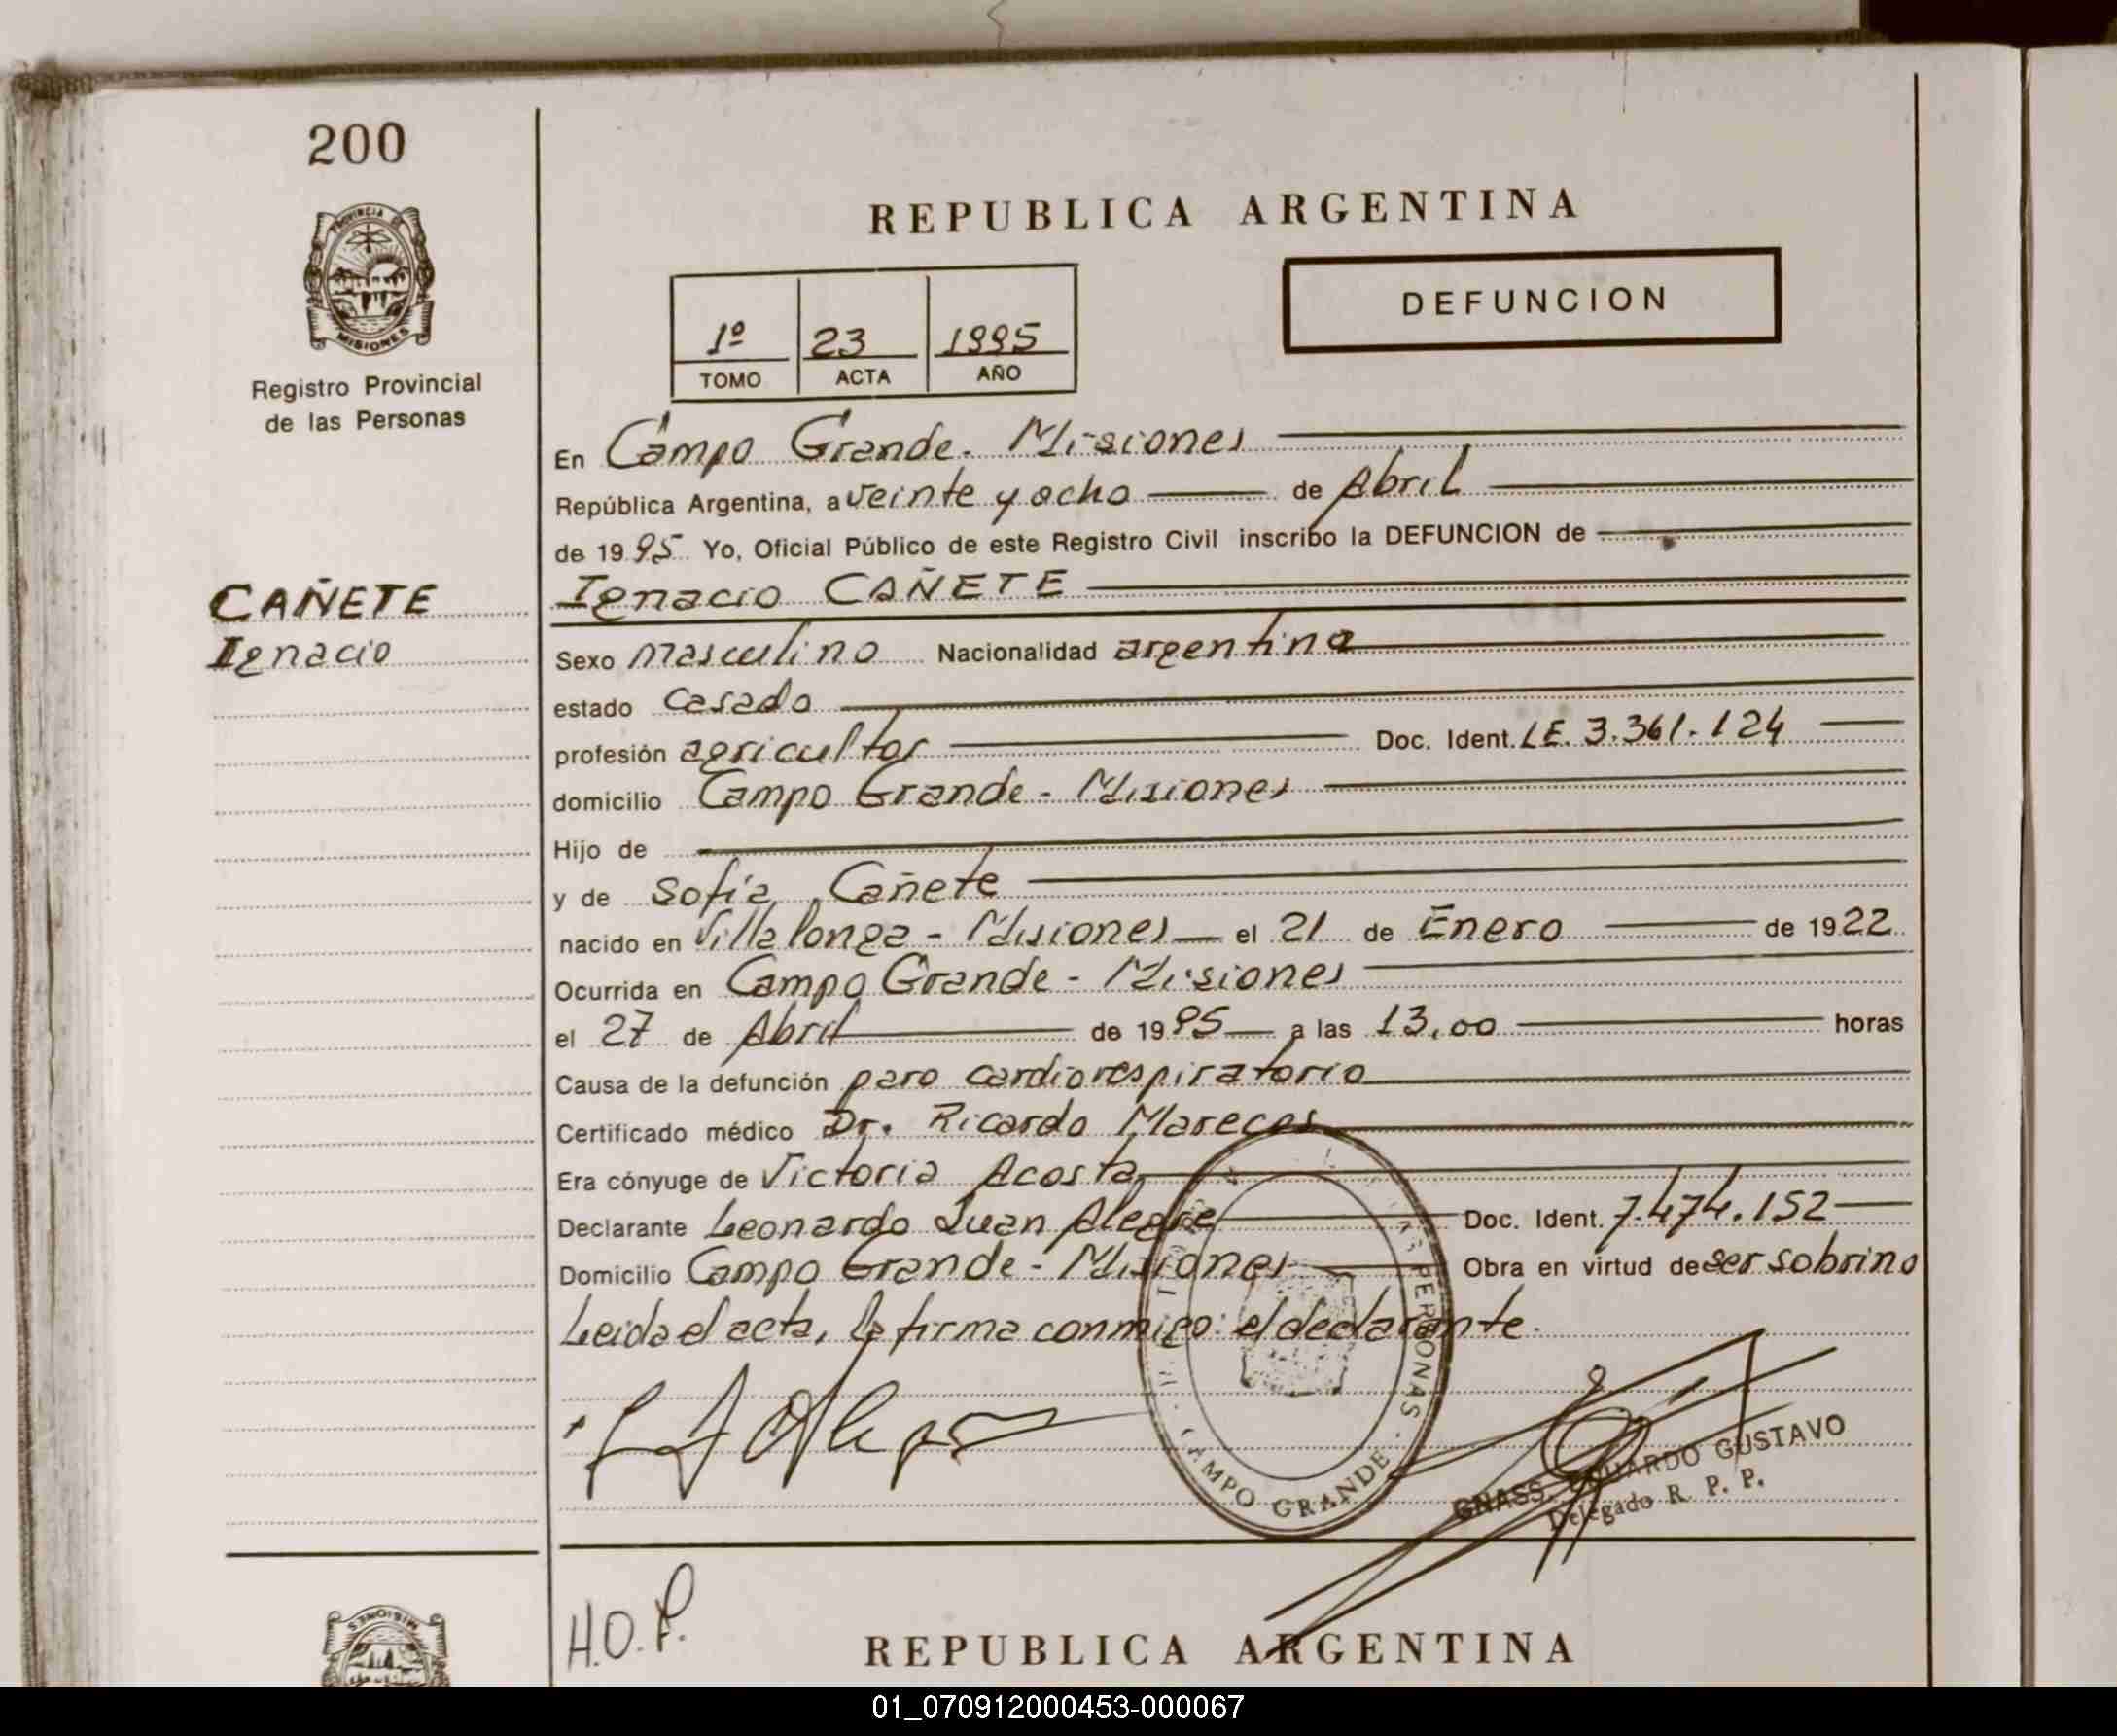 200
PROVINCIA DE
MISIONES
Registro Provincial
de las Personas
REPUBLICA ARGENTINA
DEFUNCION
1º 23 1995
TOMO ACTA AÑO
En Campo Grande. Misiones
República Argentina, a veinte y ocho de Abril
de 1995 Yo, Oficial Público de este Registro Civil inscribo la DEFUNCION de
CAÑETE
Ignacio
Ignacio CAÑETE
Sexo masculino Nacionalidad argentina
estado casado
profesión agricultor Doc. Ident. LE. 3.361.124
domicilio Campo Grande - Misiones
Hijo de
y de Sofia Cañete
nacido en Villa longa - Misiones el 21 de Enero de 1922
Ocurrida en Campo Grande - Misiones
el 27 de Abril de 1995 a las 13,00 horas
Causa de la defunción paro cardiorespiratorio
Certificado médico Dr. Ricardo Marecos
Era cónyuge de Victoria Acosta
Declarante Leonardo Juan Alegre Doc. Ident. 7.474.152
Domicilio Campo Grande - Misiones Obra en virtud de ser sobrino
Leida el acta, la firma conmigo: el declarante.
LAS PERSONAS - CAMPO GRANDE -
GNASS, EDUARDO GUSTAVO
Delegado R. P. P.
H.O.P.
REPUBLICA ARGENTINA
MISIONES
01_070912000453-000067